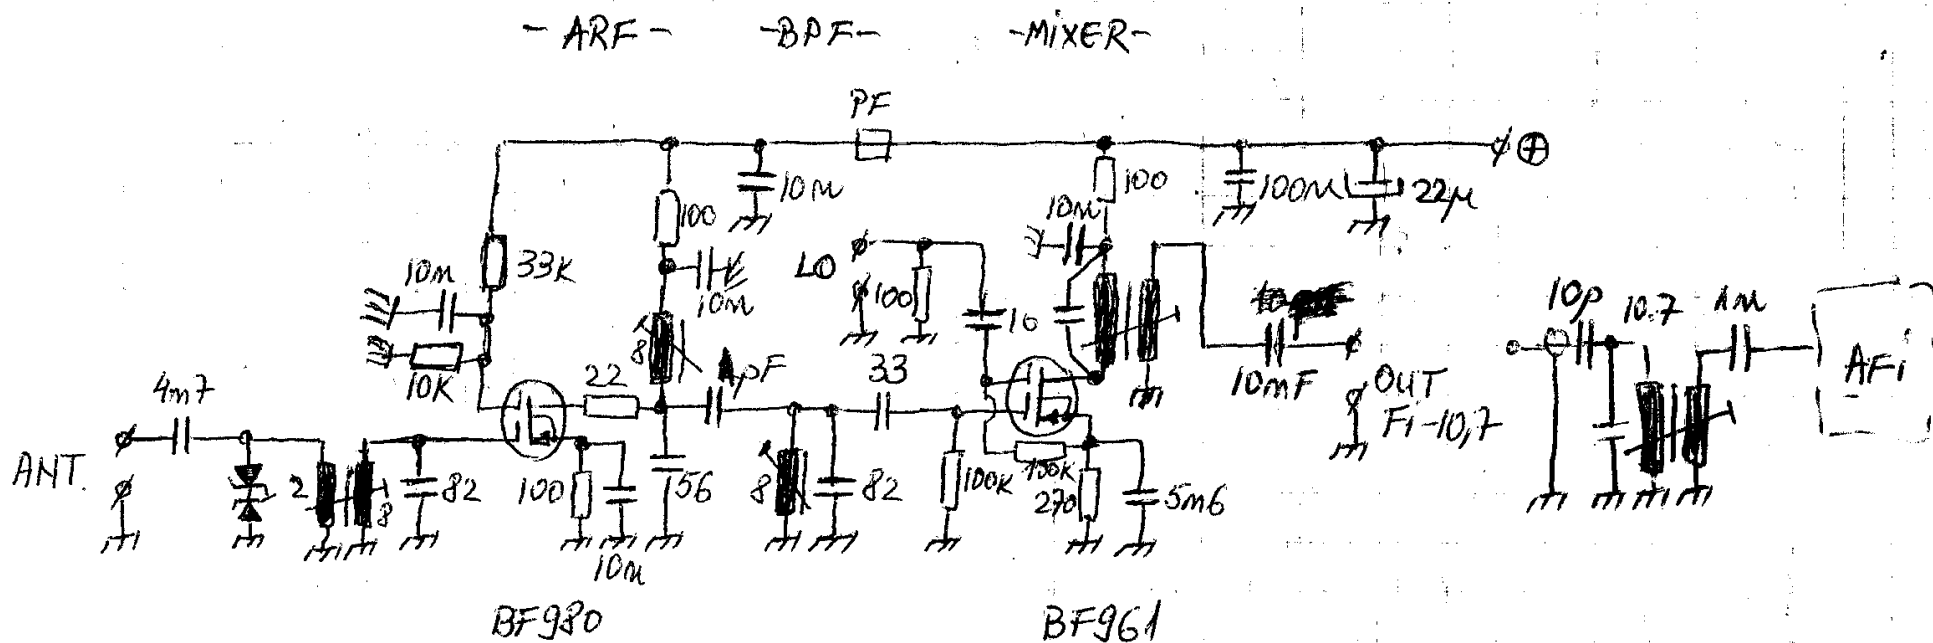 - ARF - -BPF- -MIXER-
PF
10n
100
100
10n
100n
22µ
33K
10n
10n
LO
100
16
10K
22
8
1pF
33
10nF
OUT
Fi-10,7
10p
10.7
1n
AFi
4n7
ANT.
2
8
82
100
10n
56
8
82
100K
100K
270
5n6
BF980
BF961